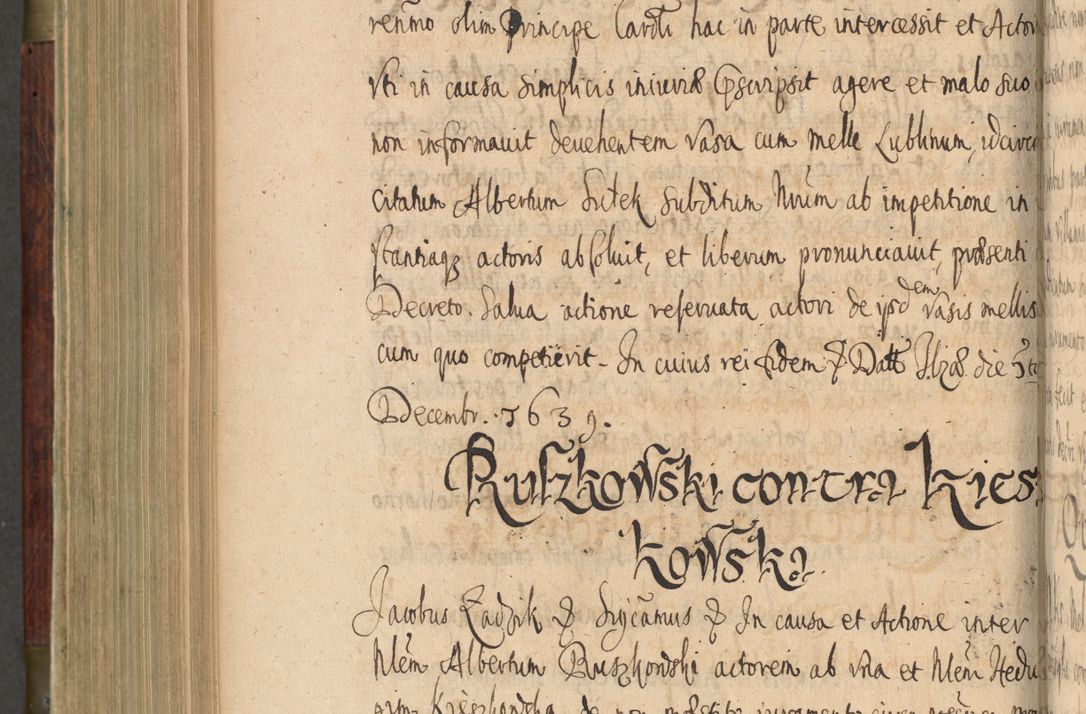 reñmo olim Principe Cardli hac in parte intercessit et Actor
vti in causa simplicis iniuriæ conscripsit agere et malo suo
non informauit deuehentem vasa cum melle Lublinum, idcirco
citatum Albertum Sułek subditum Nrum ab impetitione in
stantiaqʒ actoris absoluit, et liberum pronunciauit, præsenti
Decreto. Salua actione reseruata actori de ipsdem vasis mellis
cum quo competierit. In cuius rei fidem & Datt Ilzæ die 3tia
Decembr. 1639.
Ruszkowski contra Kies
kowska
Jacobus Zadzik & Significamus & In causa et Actione inter
Nlem Albertum Ruszkowski actorem ab vna et Nlem Hedu